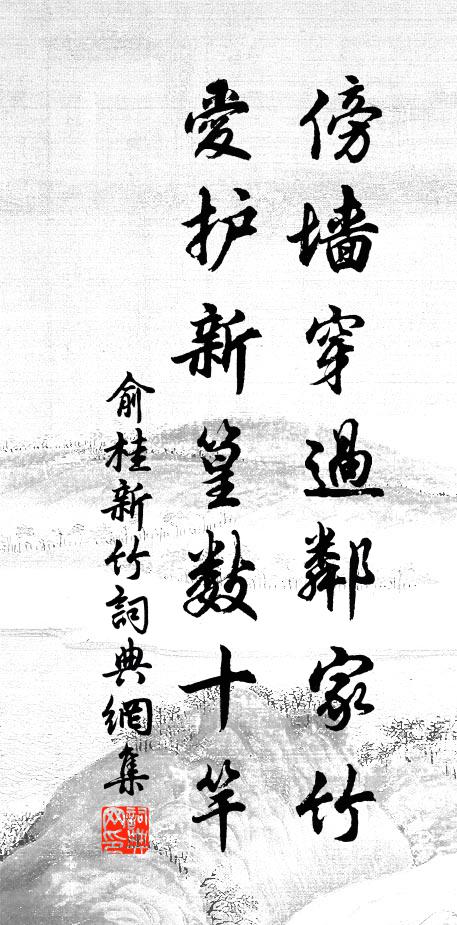 傍墙穿過鄰家竹
愛护新篁数十竿
俞桂新竹詞典網集